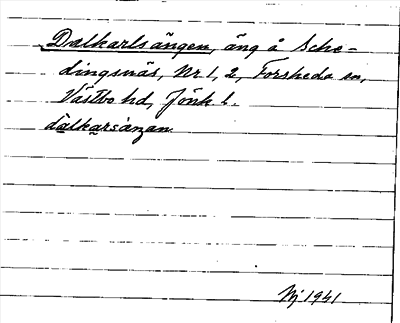 Dalkarlsängen, äng å Sche-
dingsnäs, Nr 1, 2, Forsheda sn,
Västbo hd, Jönk l.
dàlkarsàŋan
Nj 1941